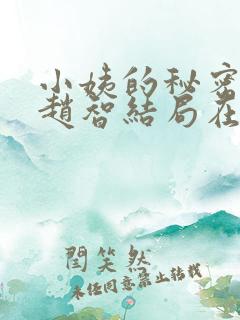 小姨的秘密
趙智結局在
閆笑然
未经同意禁止转载